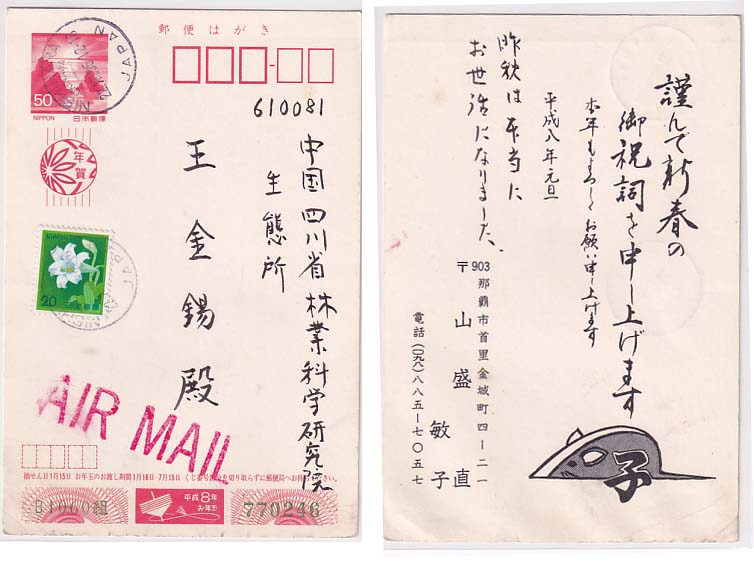 郵便はがき
50
NIPPON 日本郵便
JAPAN
年賀
610081
中国四川省林業科学研究院
生態所
王金錫殿
NIPPON
20
日本郵便
AIR MAIL
抽せん日1月15日 お年玉のお渡し期間1月16日-7月15日 くじ番号部分を切り取らずに郵便局へお持ちください。
B1000組
平成8年
お年玉
770246
謹んで新春の
御祝詞を申し上げます
本年もよろしくお願い申し上げます
平成八年元旦
昨秋は本当に
お世話になりました。
〒903 那覇市首里金城町四-二一
山盛 直
敏子
電話(〇九八)八八五-七〇五七
子